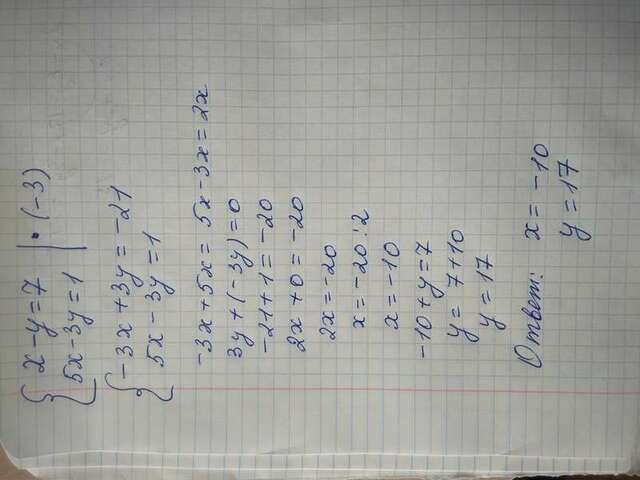 x-y=7 | • (-3)
5x-3y=1
-3x+3y=-21
5x-3y=1
-3x+5x=5x-3x=2x
3y+(-3y)=0
-21+1=-20
2x+0=-20
2x=-20
x=-20:2
x=-10
-10+y=7
y=7+10
y=17
Ответ: x=-10
y=17